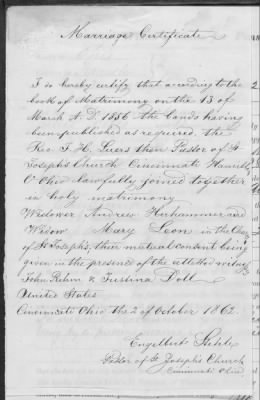 Marriage Certificate
I do hereby certify that according to the
book of Matrimony on the 13 of
March A. D. 1856 the bands having
been published as required, the
Rev. F. H. Luers then Pastor of St
Joseph's Church Cincinnati Hamilt.
O Ohio lawfully joined together
in holy matrimony
Widower Andrew Herhammer and
Widow Mary Leon in the Church
of St Joseph's, their mutual consent being
given in the presence of the attested witness
John Rehm & Doll
United States
Cincinnati Ohio the 2 of October 1862.
Engelbert
Pastor of St Joseph's Church
Cincinnati Ohio